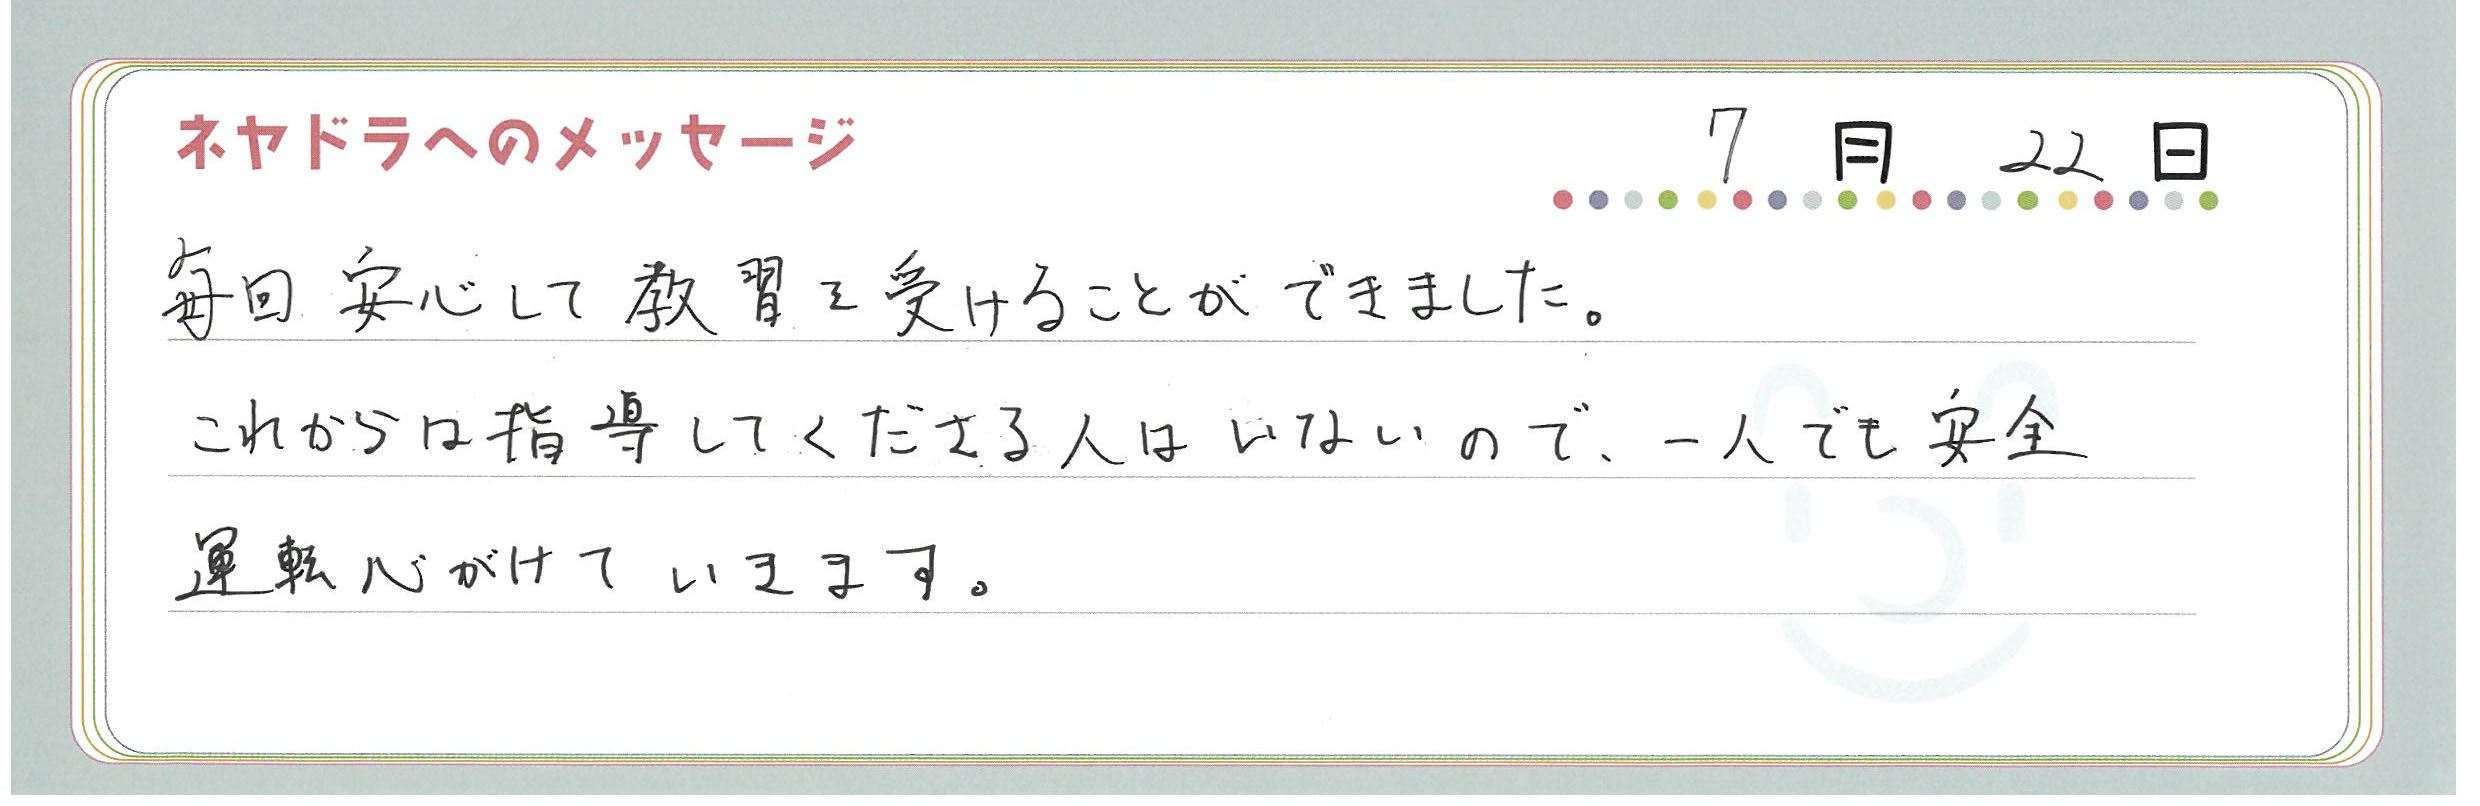 ネヤドラへのメッセージ 7月22日
毎回安心して教習を受けることができました。
これからは指導してくださる人はいないので、一人でも安全
運転心がけていきます。